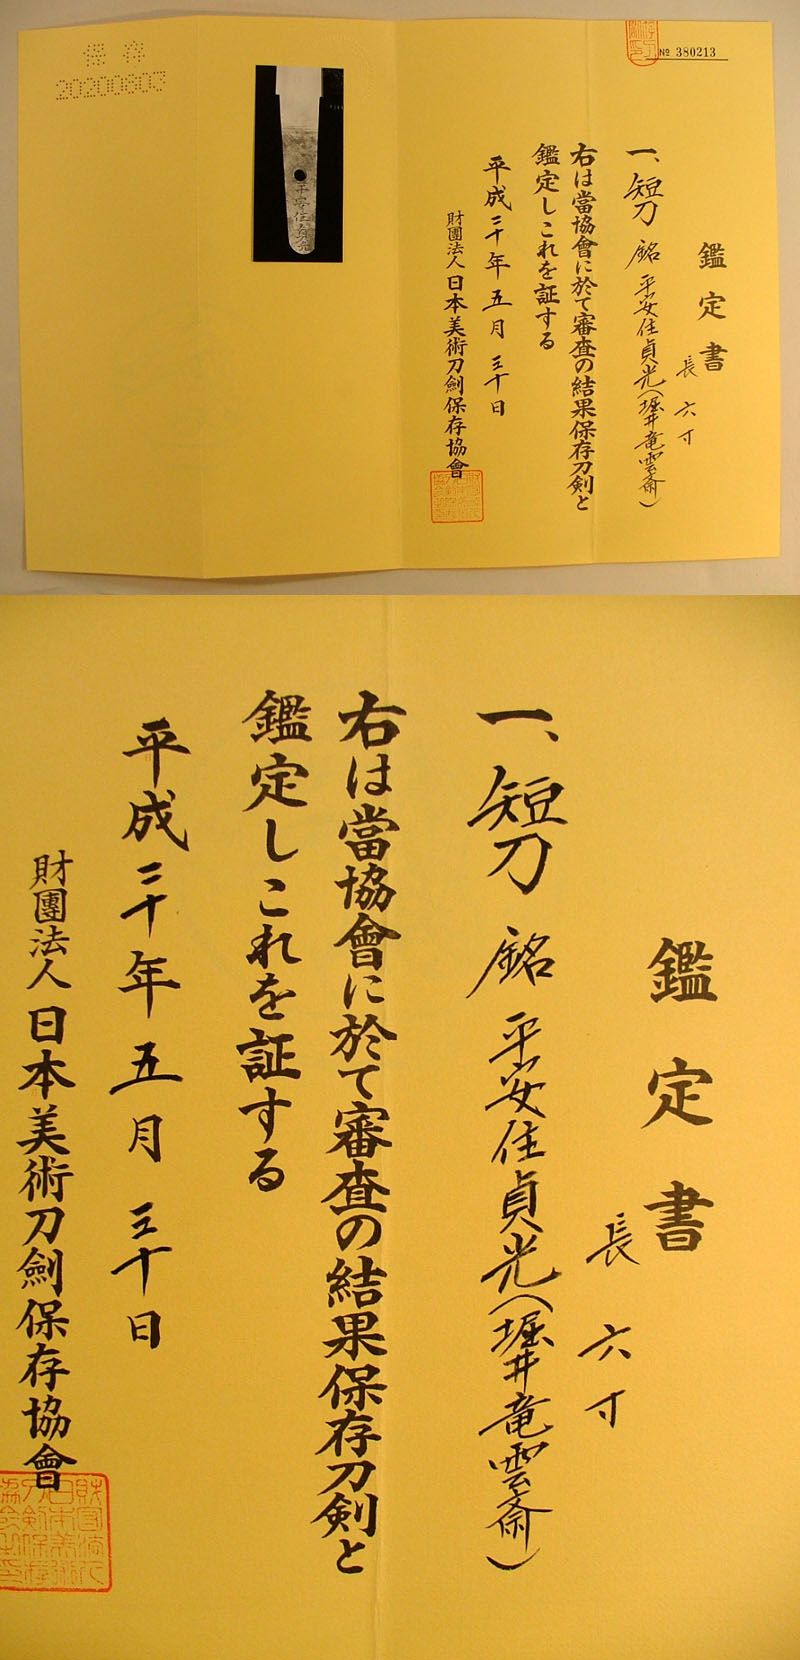 № 380213
鑑定書
長 六寸
一、短刀 銘 平安住貞光(堀井竜雲斎)
右は當協會に於て審査の結果保存刀剣と
鑑定しこれを証する
平成二十年五月三十日
財團法人日本美術刀劍保存協會
平安住貞光
保存
20200803
鑑定書
長 六寸
一、短刀 銘 平安住貞光(堀井竜雲斎)
右は當協會に於て審査の結果保存刀剣と
鑑定しこれを証する
平成二十年五月三十日
財團法人日本美術刀劍保存協會